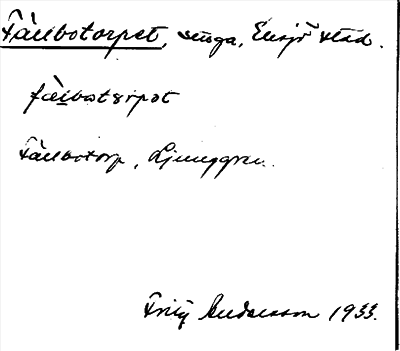 Fällbotorpet, stuga, Eksjö stad.
fälbotorpət
Fällbotorp, Ljunggren.
Fritz Andersson 1933.